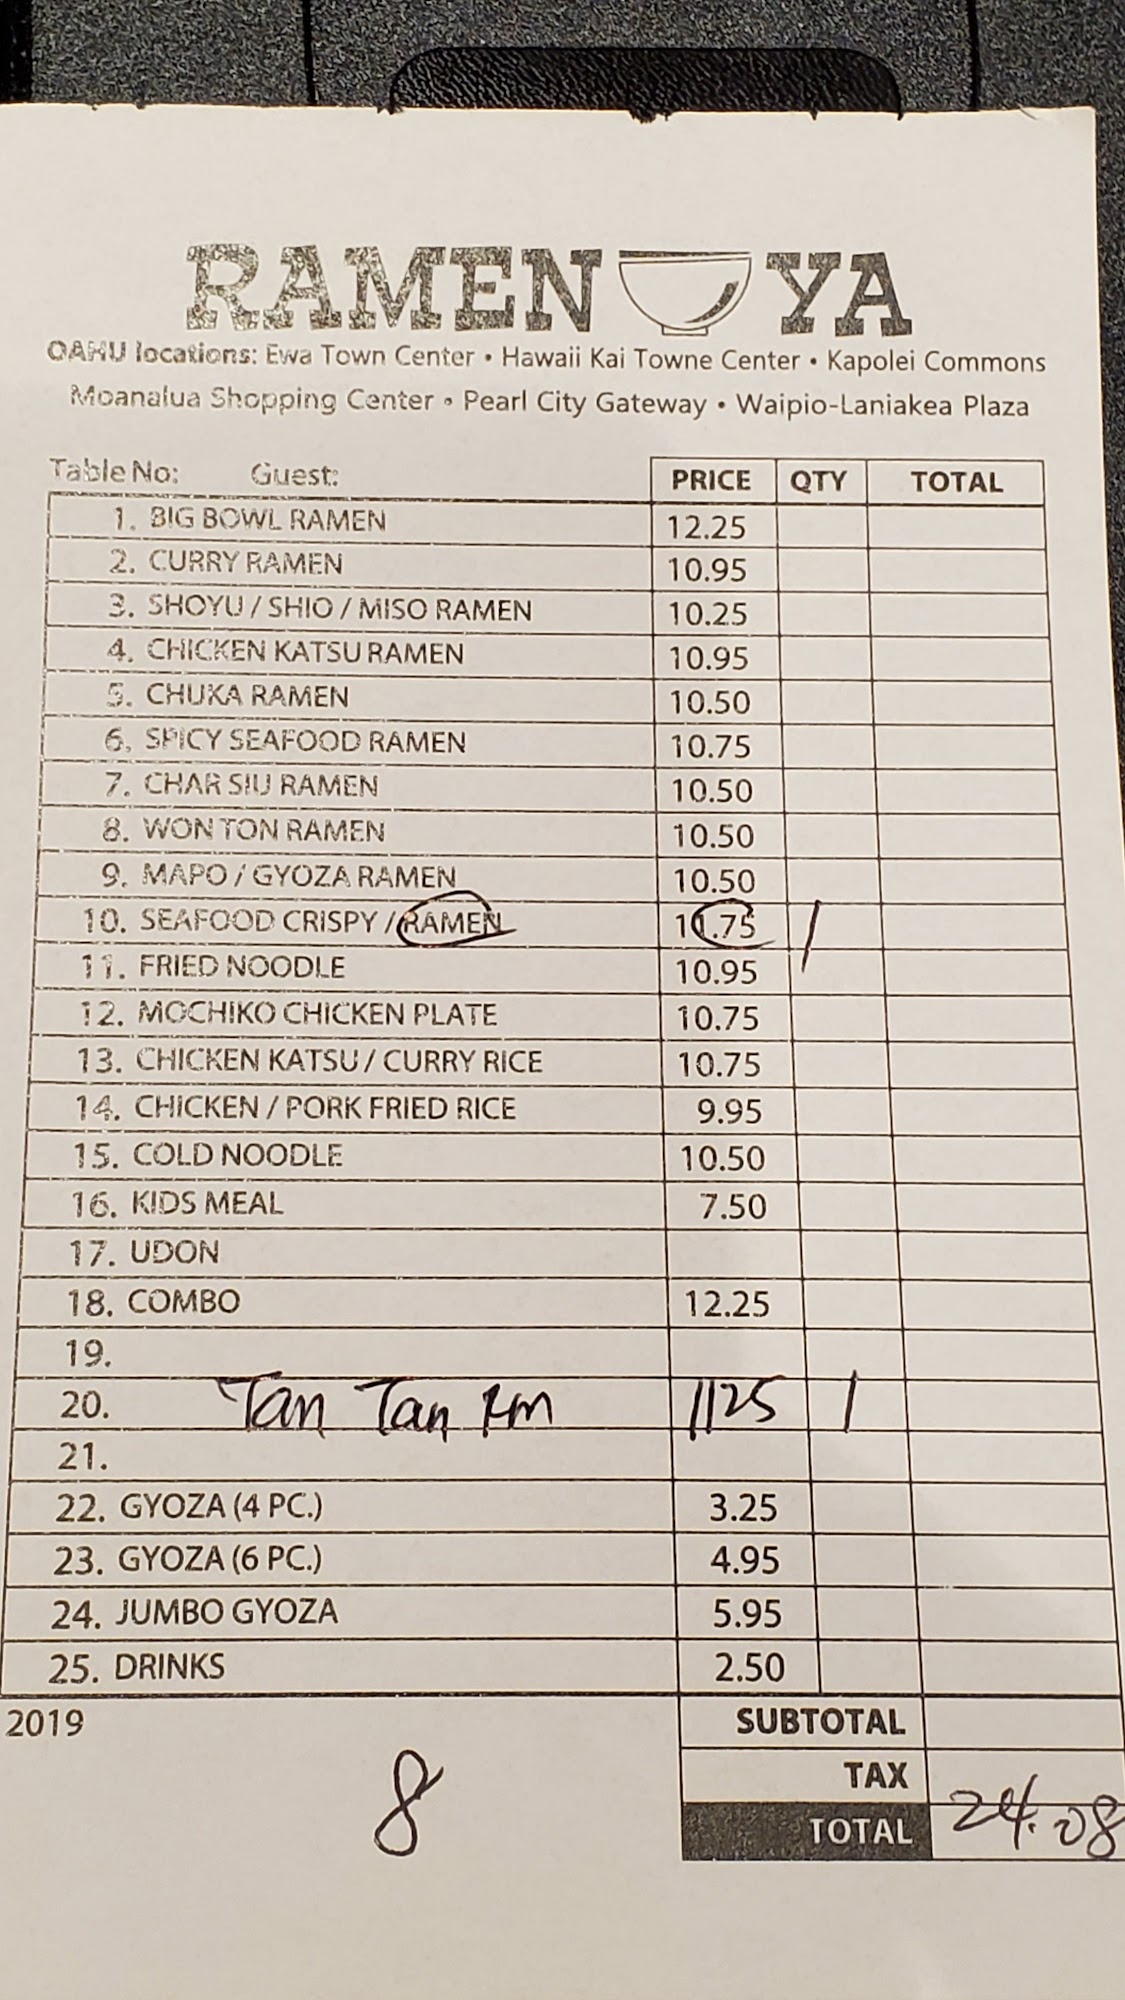 RAMEN YA
OAHU locations: Ewa Town Center • Hawaii Kai Towne Center • Kapolei Commons
Moanalua Shopping Center • Pearl City Gateway • Waipio-Laniakea Plaza
Table No: Guest: PRICE QTY TOTAL
1. BIG BOWL RAMEN 12.25
2. CURRY RAMEN 10.95
3. SHOYU / SHIO / MISO RAMEN 10.25
4. CHICKEN KATSU RAMEN 10.95
5. CHUKA RAMEN 10.50
6. SPICY SEAFOOD RAMEN 10.75
7. CHAR SIU RAMEN 10.50
8. WON TON RAMEN 10.50
9. MAPO / GYOZA RAMEN 10.50
10. SEAFOOD CRISPY / RAMEN 11.75 1
11. FRIED NOODLE 10.95
12. MOCHIKO CHICKEN PLATE 10.75
13. CHICKEN KATSU / CURRY RICE 10.75
14. CHICKEN / PORK FRIED RICE 9.95
15. COLD NOODLE 10.50
16. KIDS MEAL 7.50
17. UDON
18. COMBO 12.25
19.
20. Tan Tan rm 1125 1
21.
22. GYOZA (4 PC.) 3.25
23. GYOZA (6 PC.) 4.95
24. JUMBO GYOZA 5.95
25. DRINKS 2.50
2019 SUBTOTAL
8 TAX
TOTAL 24.08